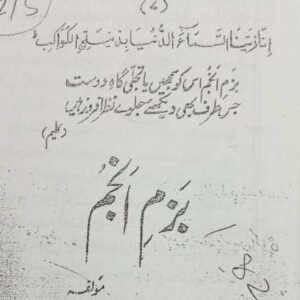 (۷)
انا زینا السماء الدنیا بزینة الکواکب
بزمِ انجم اس کو سمجھیں یا تجلی گاہِ دوست
جس طرف بھی دیکھئے جلوے نظر افروز ہیں
(کلیم)
بزمِ انجم
مؤلفہ